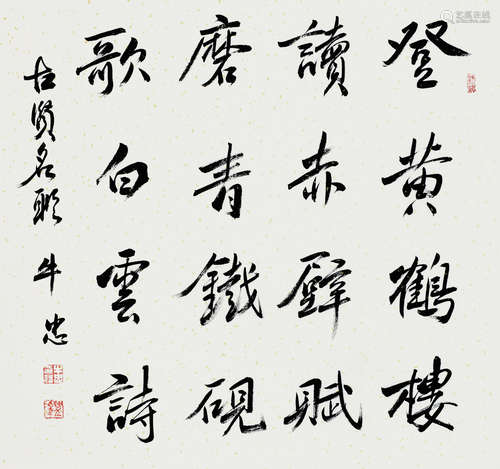 登黄鶴樓
讀赤壁賦
磨青鐵硯
歌白雲詩
古賢名聯 牛忠